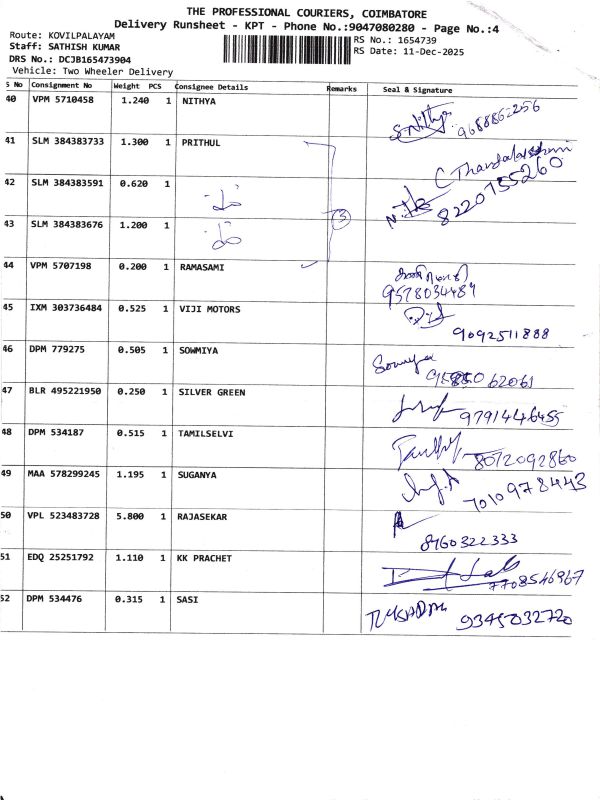 THE PROFESSIONAL COURIERS, COIMBATORE
Delivery Runsheet - KPT - Phone No.:9047080280 - Page No.:4
Route: KOVILPALAYAM
RS No.: 1654739
Staff: SATHISH KUMAR
RS Date: 11-Dec-2025
DRS No.: DCJB165473904
Vehicle: Two Wheeler Delivery
S No Consignment No Weight PCS Consignee Details Remarks Seal & Signature
40 VPM 5710458 1.240 1 NITHYA
S.Nithya 9688862256
41 SLM 384383733 1.300 1 PRITHUL
42 SLM 384383591 0.620 1
8220755260
43 SLM 384383676 1.200 1
3
44 VPM 5707198 0.200 1 RAMASAMI
9578034484
45 IXM 303736484 0.525 1 VIJI MOTORS
9092511888
46 DPM 779275 0.505 1 SOWMIYA
Sowmya
47 BLR 495221950 0.250 1 SILVER GREEN
9791446455
48 DPM 534187 0.515 1 TAMILSELVI
8072092860
49 MAA 578299245 1.195 1 SUGANYA
7010978443
50 VPL 523483728 5.800 1 RAJASEKAR
8760322333
51 EDQ 25251792 1.110 1 KK PRACHET
7708546967
52 DPM 534476 0.315 1 SASI
9345032720